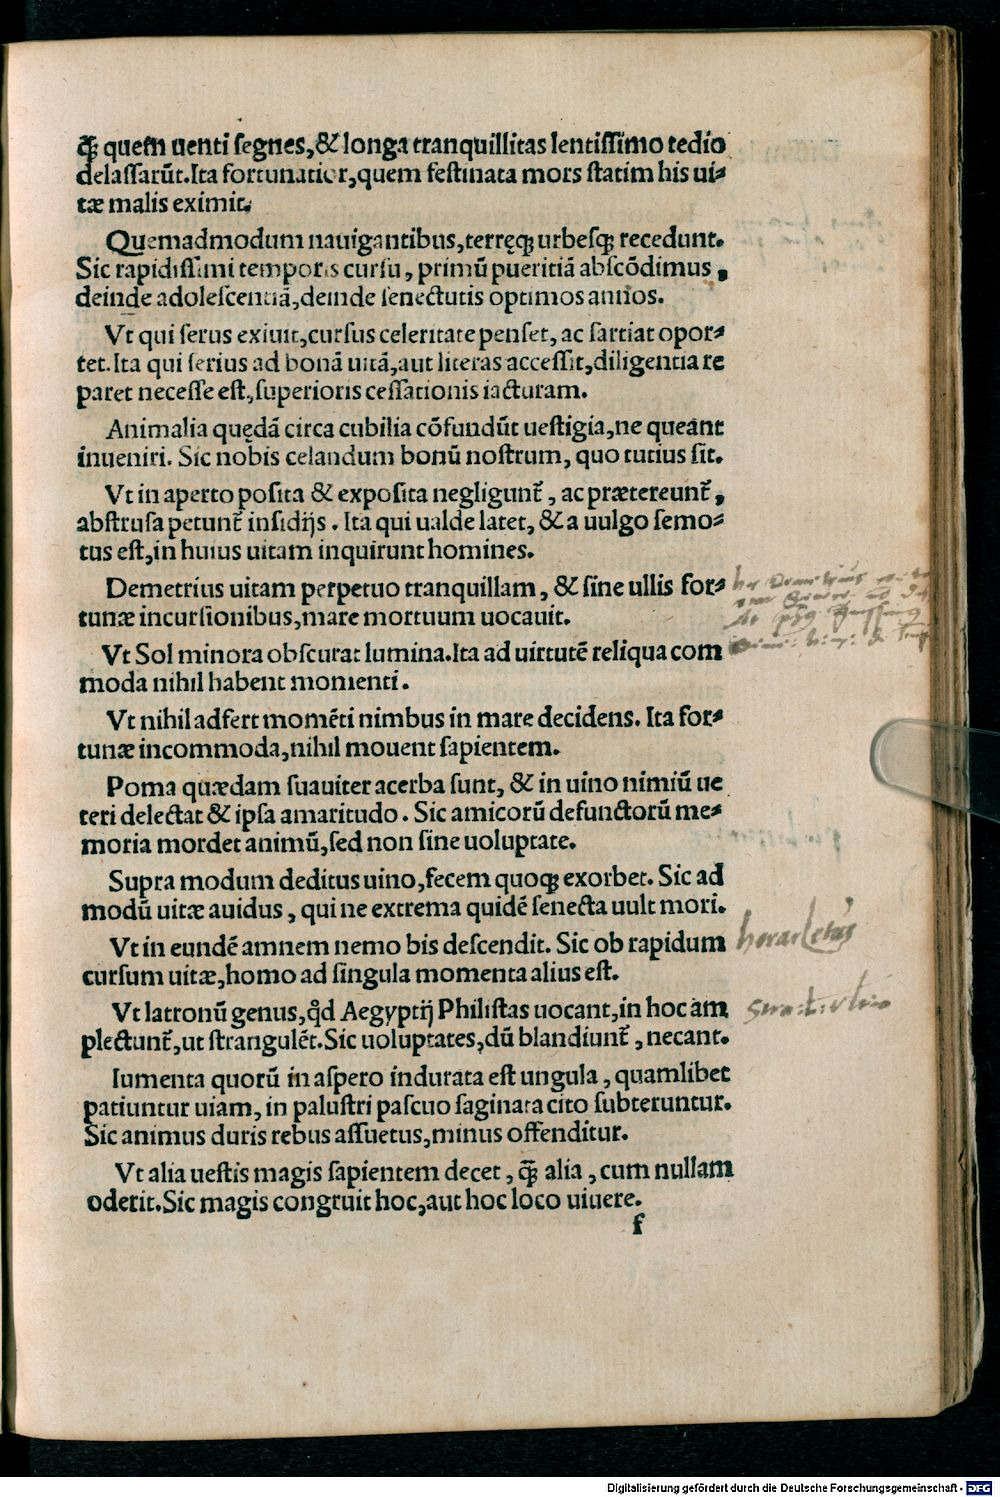 ꝙ̄ quem uenti segnes,& longa tranquillitas lentissimo tedio
delassarũt.Ita fortunatior,quem festinata mors statim his ui⸗
tæ malis eximit.
Quemadmodum nauigantibus,terręq; urbesq; recedunt.
Sic rapidissimi temporis cursu, primũ pueritiã abscõdimus,
deinde adolescentiã,deinde senectutis optimos annos.
Vt qui serus exiuit,cursus celeritate penset, ac sartiat opor⸗
tet.Ita qui serius ad bonã uitã,aut literas accessit,diligentia re
paret necesse est,superioris cessationis iacturam.
Animalia quędã circa cubilia cõfundũt uestigia,ne queant
inueniri. Sic nobis celandum bonũ nostrum, quo tutius sit.
Vt in aperto posita & exposita negligunt᷑, ac prætereunt᷑,
abstrusa petunt᷑ insidijs. Ita qui ualde latet, & a uulgo semo⸗
tus est,in huius uitam inquirunt homines.
Demetrius uitam perpetuo tranquillam, & sine ullis for⸗
tunæ incursionibus,mare mortuum uocauit.
Vt Sol minora obscurat lumina.Ita ad uirtutẽ reliqua com
moda nihil habent momenti.
Vt nihil adfert momẽti nimbus in mare decidens. Ita for⸗
tunæ incommoda,nihil mouent sapientem.
Poma quædam suauiter acerba sunt, & in uino nimiũ ue
teri delectat & ipsa amaritudo. Sic amicorũ defunctorũ me⸗
moria mordet animũ,sed non sine uoluptate.
Supra modum deditus uino,fecem quoq; exorbet. Sic ad
modũ uitæ auidus, qui ne extrema quidẽ senecta uult mori.
Vt in eundẽ amnem nemo bis descendit. Sic ob rapidum
cursum uitæ,homo ad singula momenta alius est.
heracletus
Vt latronũ genus,qd̃ Aegyptij Philistas uocant,in hoc am
plectunt᷑,ut strangulẽt.Sic uoluptates,dũ blandiunt᷑, necant.
Iumenta quorũ in aspero indurata est ungula, quamlibet
patiuntur uiam, in palustri pascuo saginata cito subteruntur.
Sic animus duris rebus assuetus,minus offenditur.
Vt alia uestis magis sapientem decet, ꝙ̄ alia, cum nullam
oderit.Sic magis congruit hoc,aut hoc loco uiuere.
f
Digitalisierung gefördert durch die Deutsche Forschungsgemeinschaft - DFG